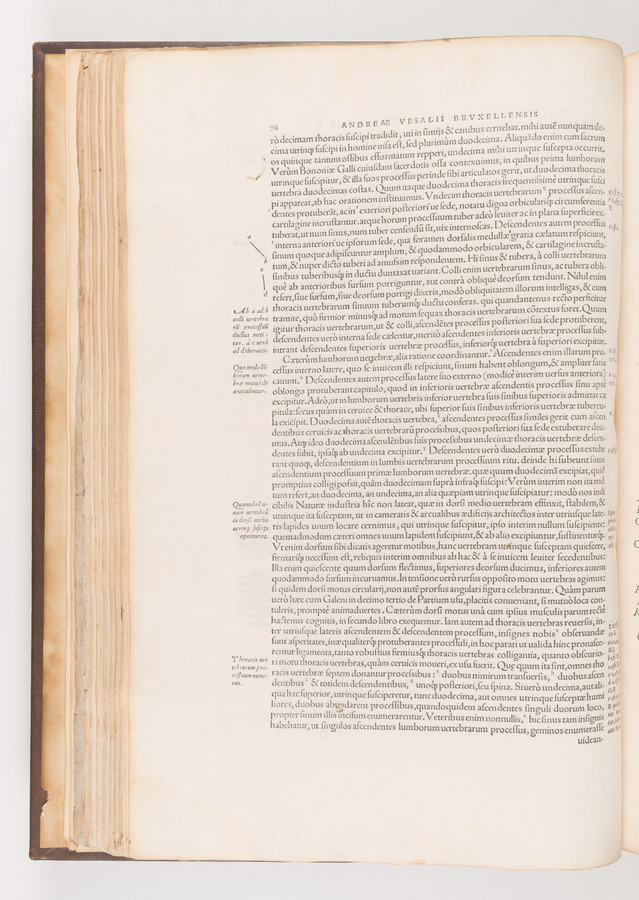 76 ANDREAE VESALII BRVXELLENSIS
rò decimam thoracis suscipi tradidit, uti in simijs & canibus cernebat. mihi autē nunquam de-
cima utrinq; suscipi in homine uisa est, sed plurimùm duodecima. Aliquādo enim cum sacrum
os quinque tantum ossibus efformatum repperi, undecima mihi utrinque suscepta occurrit.
Verùm Bononiæ Galli cuiusdam sacerdotis ossa contexuimus, in quibus prima lumborum
utrinque suscipitur, & illa suos processus perinde sibi articulatos gerit, ut duodecima thoracis
uertebra duodecimas costas. Quum itaque duodecima thoracis frequentissimè utrinque susci
pi appareat, ab hac orationem instituamus. Vndecim thoracis uertebrarum processus ascen-
dentes protuberāt, ac in exteriori posteriori ue sede, notatu digna orbiculariq; circumferentia
cartilagine incrustantur. atque horum processuum tuber adeò leuiter ac in plana superficie ex-
tuberat, ut num sinus, num tuber censendū sit, uix internoscas. Descendentes autem processus
interna anteriori ue ipsorum sede, qua foramen dorsalis medullæ gratia cælatum respiciunt,
sinum quoque adipiscuntur amplum, & quodammodo orbicularem, & cartilagine incrusta-
tum, & nuper dicto tuberi ad amussim respondentem. Hi sinus & tubera, à colli uertebrarum
sinibus tuberibusq́; in ductu duntaxat uariant. Colli enim uertebrarum sinus, ac tubera obli-
què ab anterioribus sursum porriguntur, aut contrà obliquè deorsum tendunt. Nihil enim
refert, siue sursum, siue deorsum porrigi dixeris, modò obliquitatem illorum intelligas, & cum
thoracis uertebrarum sinuum tuberumq́; ductu conferas. qui quandantenus recto perficitur
tramite, quò firmior minusq́; ad motum sequax thoracis uertebrarum cōtextus foret. Quum
igitur thoracis uertebrarum, ut & colli, ascendētes processus posteriori sua sede protuberent,
descendentes uerò interna sede cælentur, meritò ascendentes inferioris uertebræ processus sub-
intrant descendentes superioris uertebræ processus, inferiorq́; uertebra à superiori excipitur.
Cæterùm lumborum uertebræ, alia ratione coordinantur. Ascendentes enim illarum pro-
cessus interno latere, quo se inuicem illi respiciunt, sinum habent oblongum, & ampliter satis
cauum. Descendentes autem processus latere suo externo (modicè interim uersus anteriora)
oblongo protuberant capitulo, quod in inferioris uertebræ ascendentis processus sinu aptè
excipitur. Adeò, ut in lumborum uertebris inferior uertebra suis sinibus superioris admittat ca
pitula: secus quàm in ceruice & thorace, ubi superior suis sinibus inferioris uertebræ tubercu-
la excipit. Duodecima autē thoracis uertebra, ascendentes processus similes gerit cum ascen
dentibus ceruicis ac thoracis uertebrarū processibus, quos posteriori sua sede extuberare deci-
mus. Atq; ideo duodecima ascendētibus suis processibus undecimæ thoracis uertebræ descen-
dentes subit, ipsaq́; ab undecima excipitur. Descendentes uerò duodecimæ processus extube
rant quoq;, descendentium in lumbis uertebrarum processuum ritu. deinde hi subeunt sinus
ascendentium processuum primæ lumborum uertebræ. quæ quum duodecimā excipiat, quid
promptius colligi possit, quàm duodecimam suprà infraq́; suscipi? Verùm interim non ita mul
tum refert, an duodecima, an undecima, an alia quæpiam utrinque suscipiatur: modò nos indi
cibilis Naturæ industria hîc non lateat, quæ in dorsi medio uertebram effinxit, stabilem, &
utrinque ita susceptam, ut in cameratis & arcualibus ædificijs architectos inter utriusque late-
ris lapides unum locare cernimus, qui utrinque suscipitur, ipso interim nullum suscipiente:
quemadmodum cæteri omnes unum lapidem suscipiunt, & ab alio excipiuntur, sustinenturq́;.
Vt enim dorsum sibi dicatis ageretur motibus, hanc uertebram utrinque susceptam quiescere,
firmariq́; necessum est, reliquis interim omnibus ab hac & à se inuicem leuiter secedentibus:
Illa enim quiescente quum dorsum flectimus, superiores deorsum ducimus, inferiores autem
quodammodo sursum incuruamus. In tensione uerò rursus opposito motu uertebras agimus:
si quidem dorsi motus circularij, non autē prorsus angulari figura celebrantur. Quàm parum
uerò hæc cum Galeni in decimo tertio de Partium usu, placitis conueniant, si mutuò loca con-
tuleris, promptè animaduertes. Cæterùm dorsi motus unà cum ipsius musculis parum rectè
hactenus cognitis, in secundo libro exequemur. Iam autem ad thoracis uertebras reuersis, in-
ter utriusque lateris ascendentem & descendentem processum, insignes nobis obseruandæ
sunt asperitates, inæqualiterq́; protuberantes processuli, in hoc parati ut ualida hinc pronasce-
rentur ligamenta, tanto robustius firmiusq́; thoracis uertebras colligantia, quanto obscurio-
ri motu thoracis uertebras, quàm ceruicis moueri, ex usu fuerit. Quę quum ita sint, omnes tho
racis uertebræ septem donantur processibus: duobus nimirum transuersis, duobus ascen
dentibus & totidem descendentibus, unoq́; posteriori, seu spina. Si uerò undecima, aut ali-
qua hac superior, utrinque susciperetur, tunc duodecima, aut omnes utrinque susceptæ humi
liores, duobus abundarent processibus, quandoquidem ascendentes singuli duorum loco,
propter sinum illis incisum enumerarentur. Veteribus enim nonnullis, hic sinus tam insignis
habebatur, ut singulos ascendentes lumborum uertebrarum processus, geminos enumerasse
uidean-
a
b
c
d
Ab a ad b
colli uertebra
rū processuū
ductus noti-
tur. à c uerò
ad d thoracis.
Quomodo lū-
borum uerte-
bræ mutuò de
articulentur.
Quamobrē u-
nam uertebrā
in dorsi medio
utrinq; suscipi
oportuerit.
Thoracis uer
tebrarum pro-
cessuum nume-
rus.